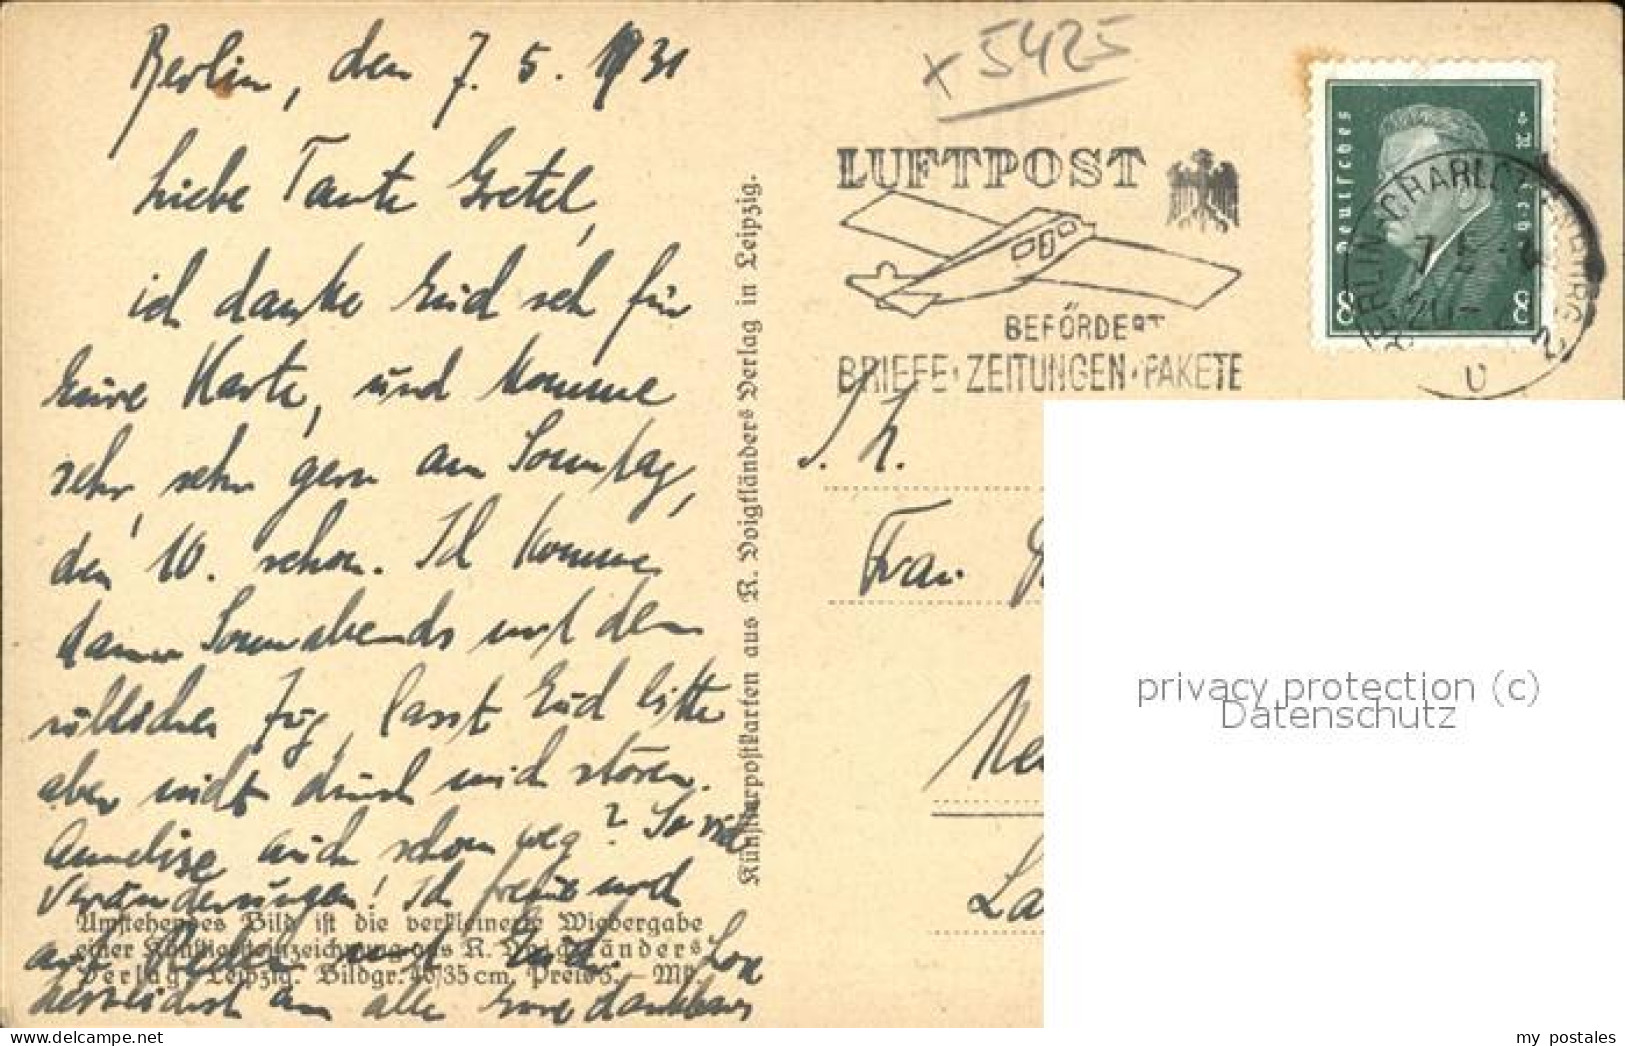 Berlin, den 7. 5. 1931
Liebe Tante Gretel,
ich danke Euch sehr für
Eure Karte, und komme
sehr, sehr gern am Sonntag,
den 10. schon. Ich komme
dann Sonnabends mit dem
üblichen Zug, lasst Euch bitte
aber nicht durch mich stören.
Annelise auch schon weg? So viel
Veränderungen! Ich freue mich
auf mit Euch.
herzlichst an alle Eure dankbare
Umstehendes Bild ist die verkleinerte Wiedergabe
einer Künstlersteinzeichnung aus R. Voigtländers
Verlag, Leipzig. Bildgr. 46/35 cm. Preis 3. Mk.
Künstlerpostkarten aus R. Voigtländers Verlag in Leipzig.
x 5425
LUFTPOST
BEFÖRDERT
BRIEFE·ZEITUNGEN·PAKETE
Deutsches Reich
8 8
BERLIN-CHARLOTTENBURG 2
7.5.
20-
U
Frau
privacy protection (c)
Datenschutz
my postales